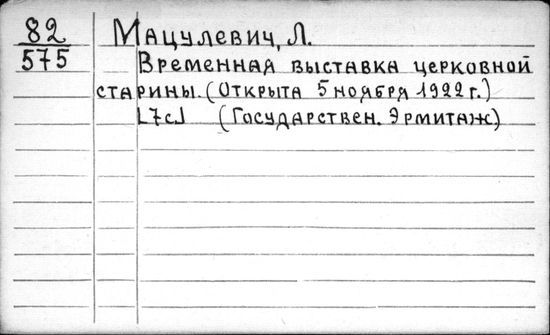 82
575
Мацулевич, Л.
Временная выставка церковной
старины. (Открыта 5 ноября 1922 г.)
[7с] (Государствен. Эрмитаж)